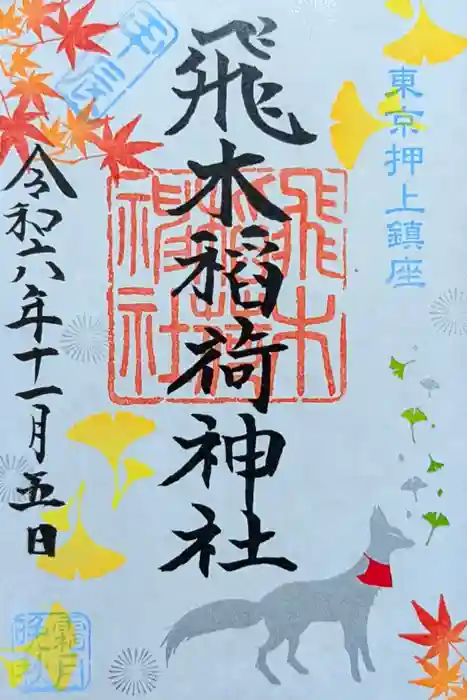 東京押上鎮座
飛木稲荷神社
飛木稲荷神社
令和六年十一月五日
霜月